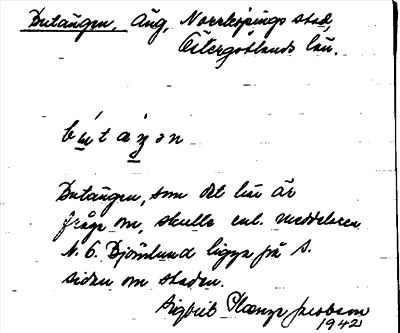 Butängen, Äng, Norrköpings stad,
Östergötlands län.
Butängen, som det här är
fråga om, skulle enl. meddelaren
N. G. Björnlund ligga på S.
sidan om staden.
Sigbrit Plænge Jacobson
1942